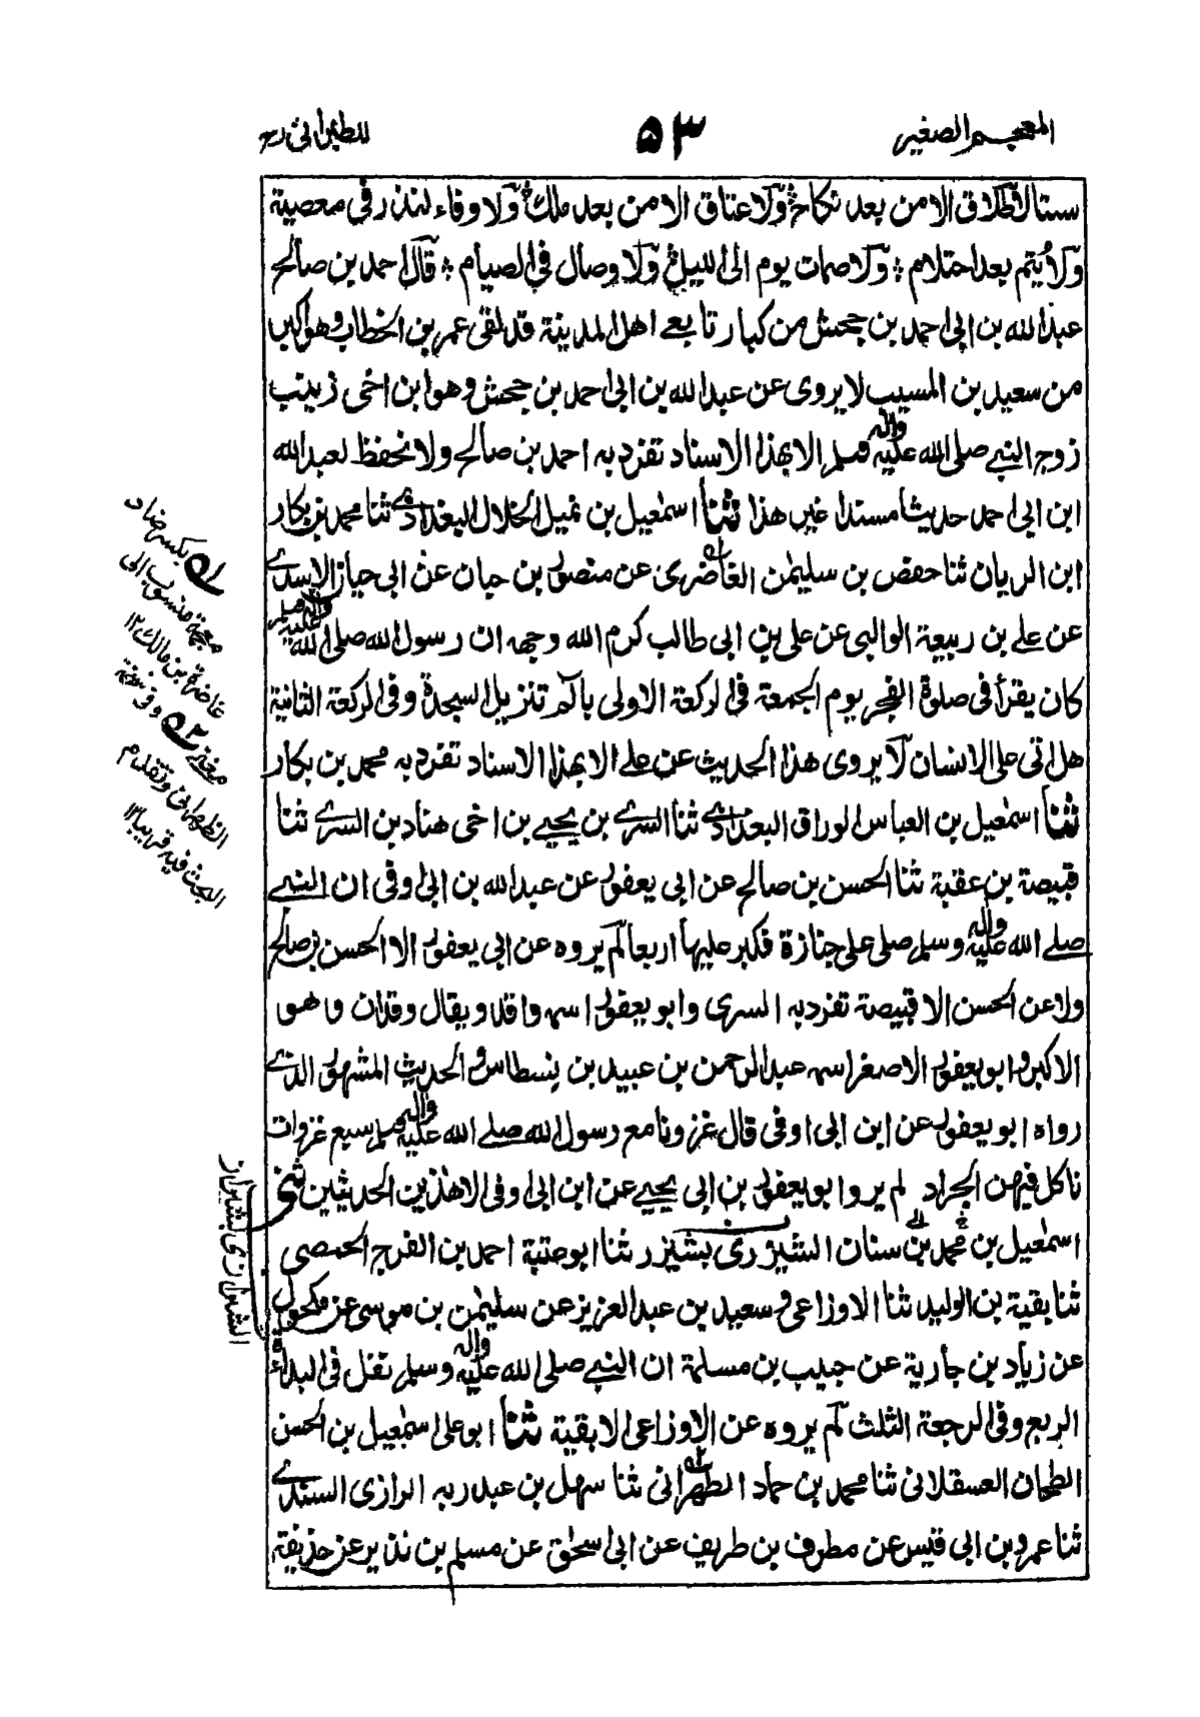 المعجم الصغير
٥٣
للطبرانی رح
ستا لا طلاق الا من بعد نكاح ولا عتاق الا من بعد ملك ولا وفاء لنذر فی معصية
ولا يُتم بعد احتلام ولا صمات يوم الی الليل ولا وصال فی الصيام قال احمد بن صالح
عبد الله بن ابی احمد بن جحش من كبار تابعے اهل المدينة قد لقی عمر بن الخطاب وهو اكبر
من سعيد بن المسيب لا يروی عن عبد الله بن ابی احمد بن جحش وهو ابن اخی زينب
زوج النبے صلی الله عليه واله وسلم الا بهذا الاسناد تفرد به احمد بن صالح ولا نحفظ لعبد الله
ابن ابی احمد حديثا مسندا غير هذا ثنا اسمٰعيل بن نميل الخلال البغدادے ثنا محمد بن بكار
ابن الريان ثنا حفص بن سليمٰن الغاضری عن منصور بن حيان عن ابی هياج الاسدے
عن علے بن ربيعة الوالبی عن علی بن ابی طالب كرم الله وجهه ان رسول الله صلی الله عليه واله وسلم
كان يقرأ فی صلوة الفجر يوم الجمعة فی الركعة الاولی بالٓمٓ تنزيل السجدة وفی الركعة الثانية
هل اتی علی الانسان لا يروی هذا الحديث عن علے الا بهذا الاسناد تفرد به محمد بن بكار
ثنا اسمٰعيل بن العباس الوراق البغدادے ثنا السرے بن يحيے بن اخی هناد بن السرے ثنا
قبيصة بن عقبة ثنا الحسن بن صالح عن ابی يعفور عن عبد الله بن ابی اوفی ان النبے
صلے الله عليه واله وسلم صلی علی جنازة فكبر عليها اربعا لم يروه عن ابی يعفور الا الحسن بن صالح
ولا عن الحسن الا قبيصة تفرد به السری وابو يعفور اسمه واقد ويقال وقدان وهو
الاكبر وابو يعفور الاصغر اسمه عبد الرحمن بن عبيد بن نسطاس والحديث المشهور الذے
رواه ابو يعفور عن ابن ابی اوفی قال غزونا مع رسول الله صلے الله عليه واله وسلم سبع غزوات
ناكل فيهن الجراد لم يرو ابو يعفور بن ابی يحيے عن ابن ابی اوفی الا هذين الحديثين ثنی
اسمٰعيل بن محمد بن سنان الشيزری بشيزر ثنا ابو عتبة احمد بن الفرج الحمصی
ثنا بقية بن الوليد ثنا الاوزاعی وسعيد بن عبد العزيز عن سليمٰن بن موسی عن مكحول
عن زياد بن جارية عن حبيب بن مسلمة ان النبے صلی الله عليه واله وسلم نفل فی البداءة
الربع وفی الرجعة الثلث لم يروه عن الاوزاعی الا بقية ثنا ابو علی اسمٰعيل بن الحسن
الطحان العسقلانی ثنا محمد بن حماد الطهرانی ثنا سهل بن عبد ربه الرازی السندے
ثنا عمرو بن ابی قيس عن مطرف بن طريف عن ابی اسحٰق عن مسلم بن نذير عن حذيفة
بكسر ضاد
معجمة منسوب الی
غاضرة بن مالك ١٢
وفی نسخة
الطهرانی وتقدم
البحث فيه قريبا ١٢